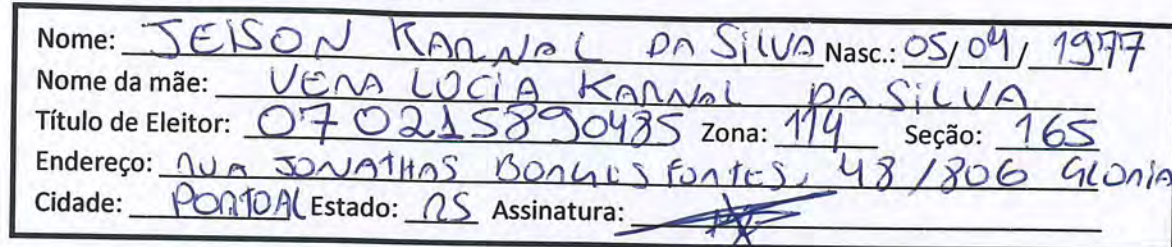 Nome: JEISON KARNAL DA SILVA Nasc.: 05/04/1977
Nome da mãe: VERA LUCIA KARNAL DA SILVA
Título de Eleitor: 070215890485 Zona: 114 Seção: 165
Endereço: RUA JONATHAS BORGES FONTES, 48/806 GLORIA
Cidade: PORTOAL Estado: RS Assinatura: